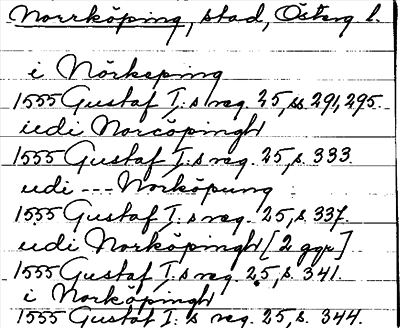 Norrköping, stad, Österg l.
i Nörkeping
1555 Gustaf I:s reg. 25, ss 291, 295.
udi Norcöpingh
1555 Gustaf I:s reg. 25, s. 333.
udi --- Norköpung
1555 Gustaf I:s reg. 25, s. 337.
udi Norköpingh [2 ggr]
1555 Gustaf I:s reg. 25, s. 341.
i Norköpingh
1555 Gustaf I:s reg. 25, s. 344.